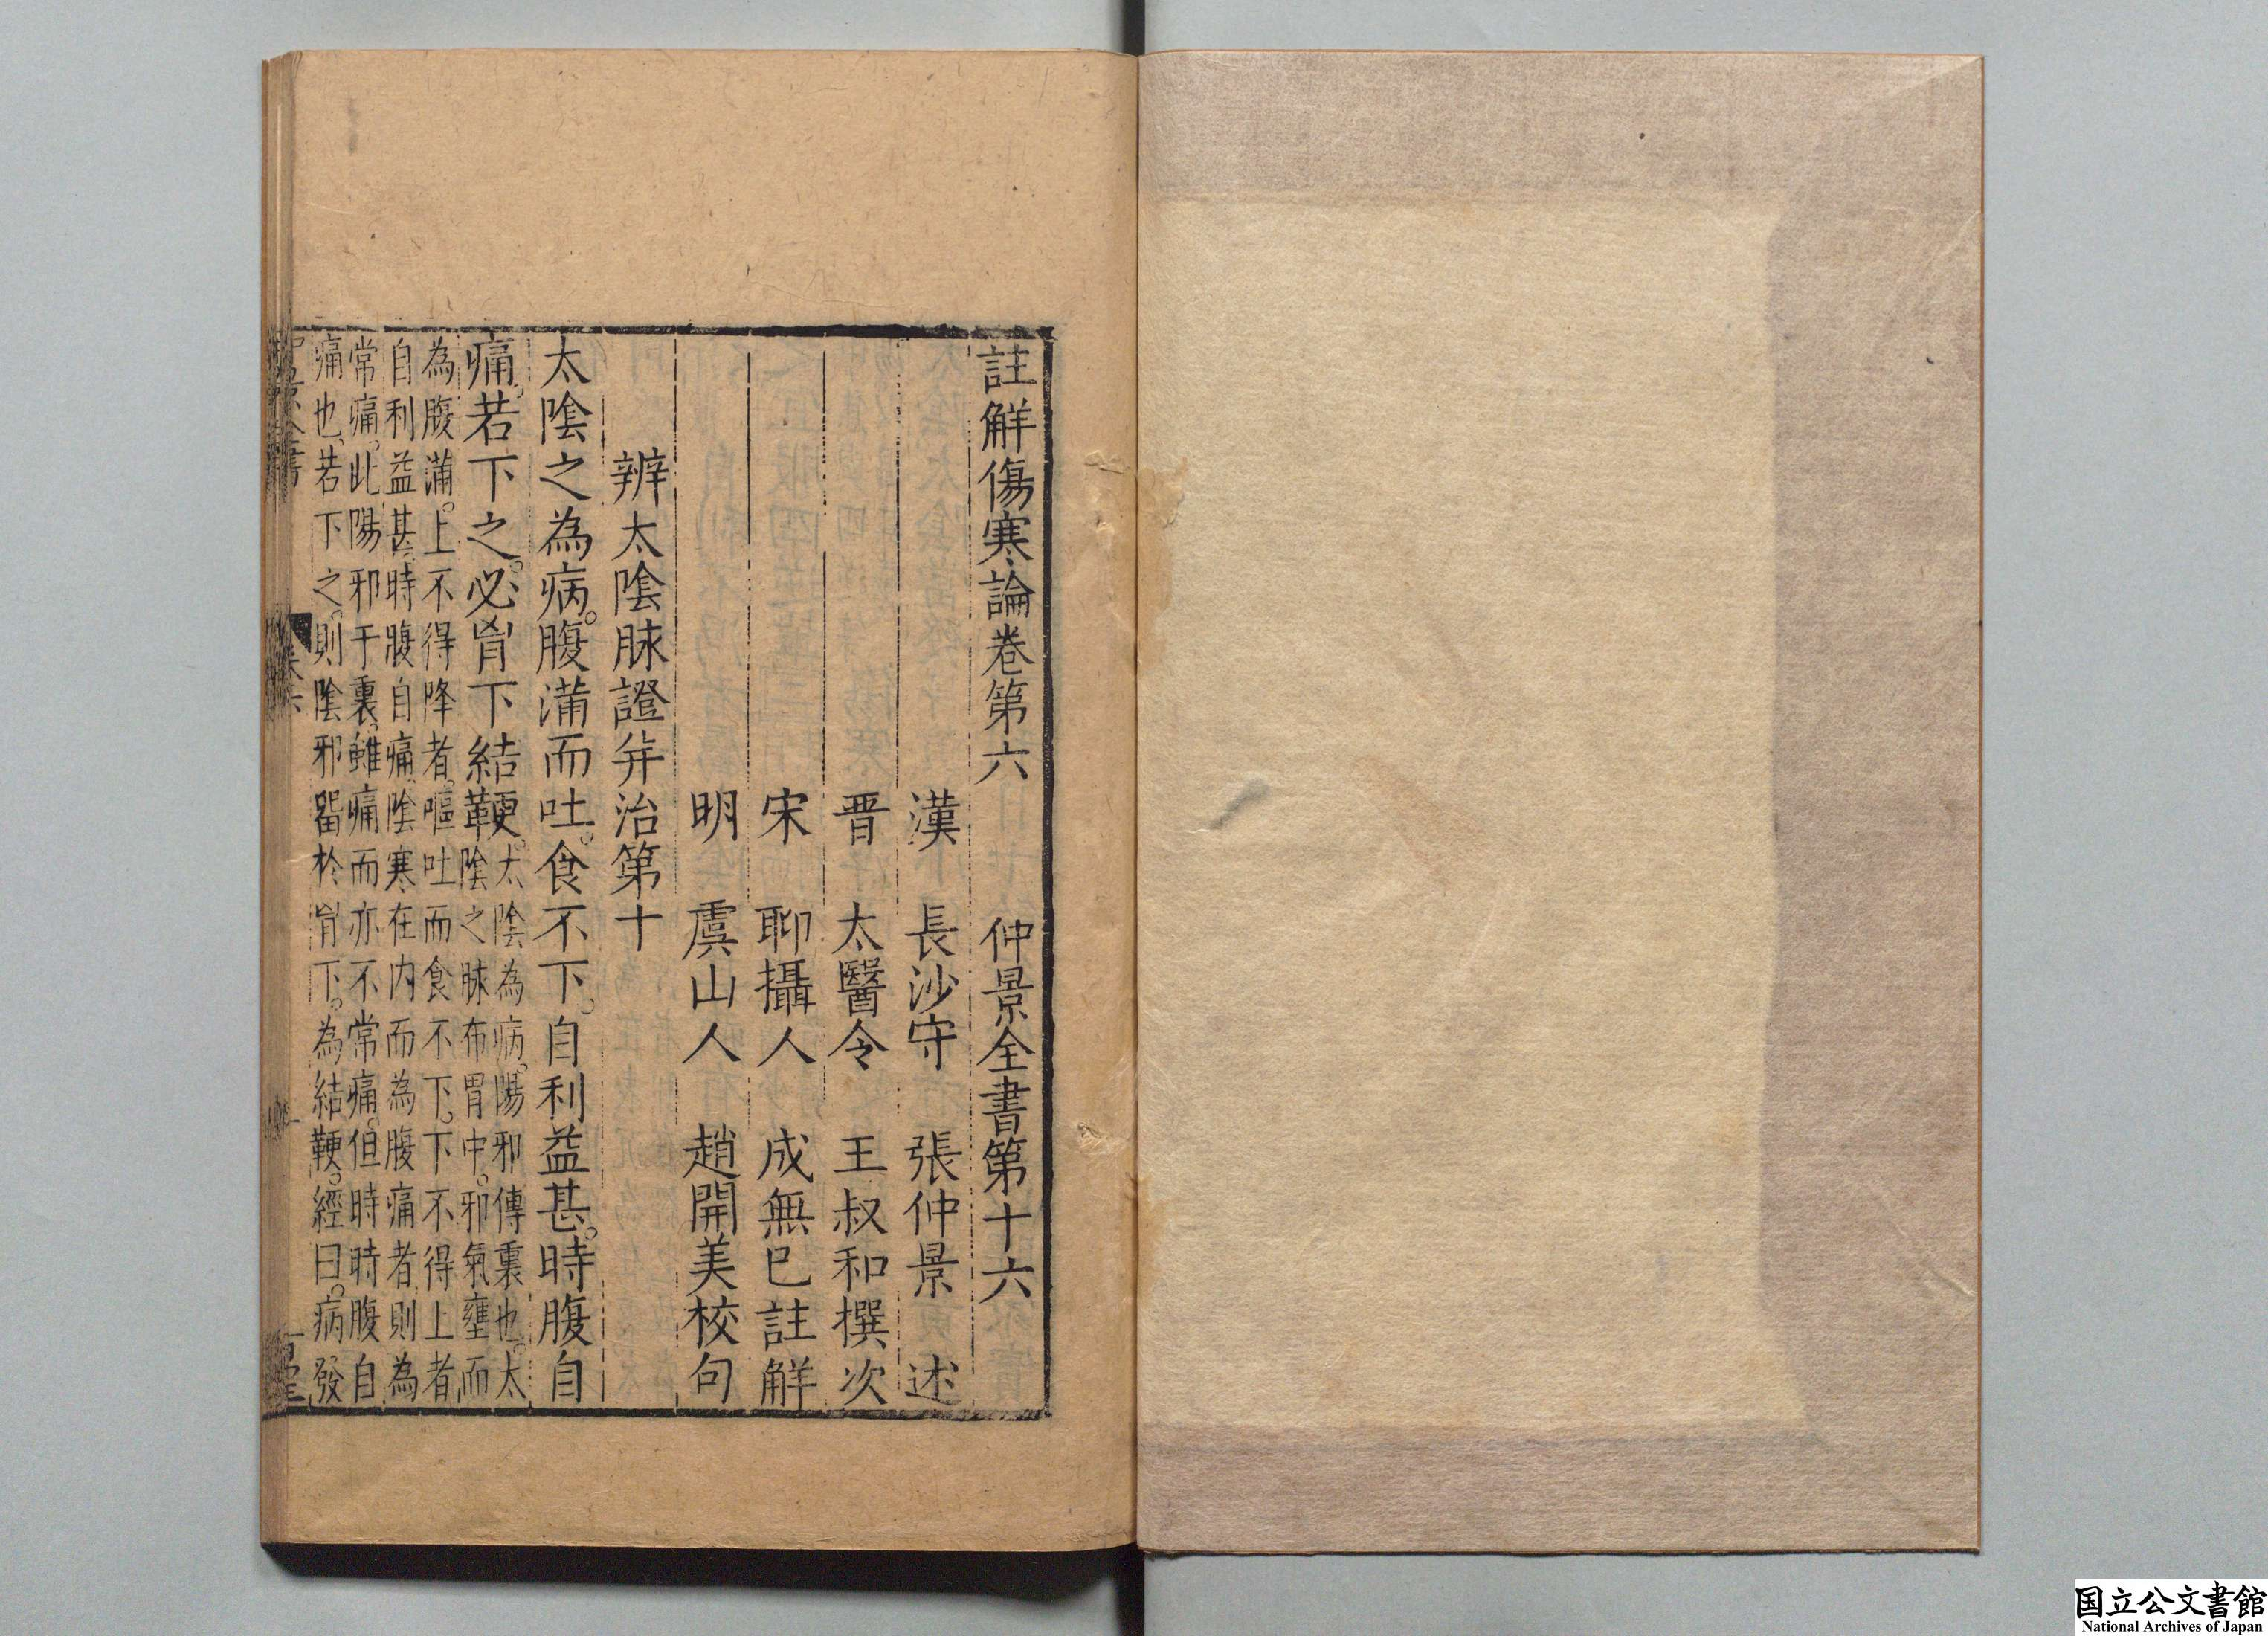 註解傷寒論卷第六　仲景全書第十六
漢　長沙守　張仲景　述
晋　太醫令　王叔和撰次
宋　聊攝人　成無已註解
明　虞山人　趙開美校句
辨太陰脉證并治第十
太陰之為病。腹滿而吐。食不下。自利益甚。時腹自
痛。若下之。必胷下結鞕。太陰為病。陽邪傳裏也。太
陰之脉布胃中。邪氣壅而
為腹滿。上不得降者。嘔吐而食不下。下不得上者
自利益甚。時腹自痛。陰寒在内而為腹痛者則為
常痛。此陽邪于裏。雖痛而亦不常痛。但時時腹自
痛也。若下之。則陰邪畱於胷下。為結鞕。經曰。病發
国立公文書館
National Archives of Japan